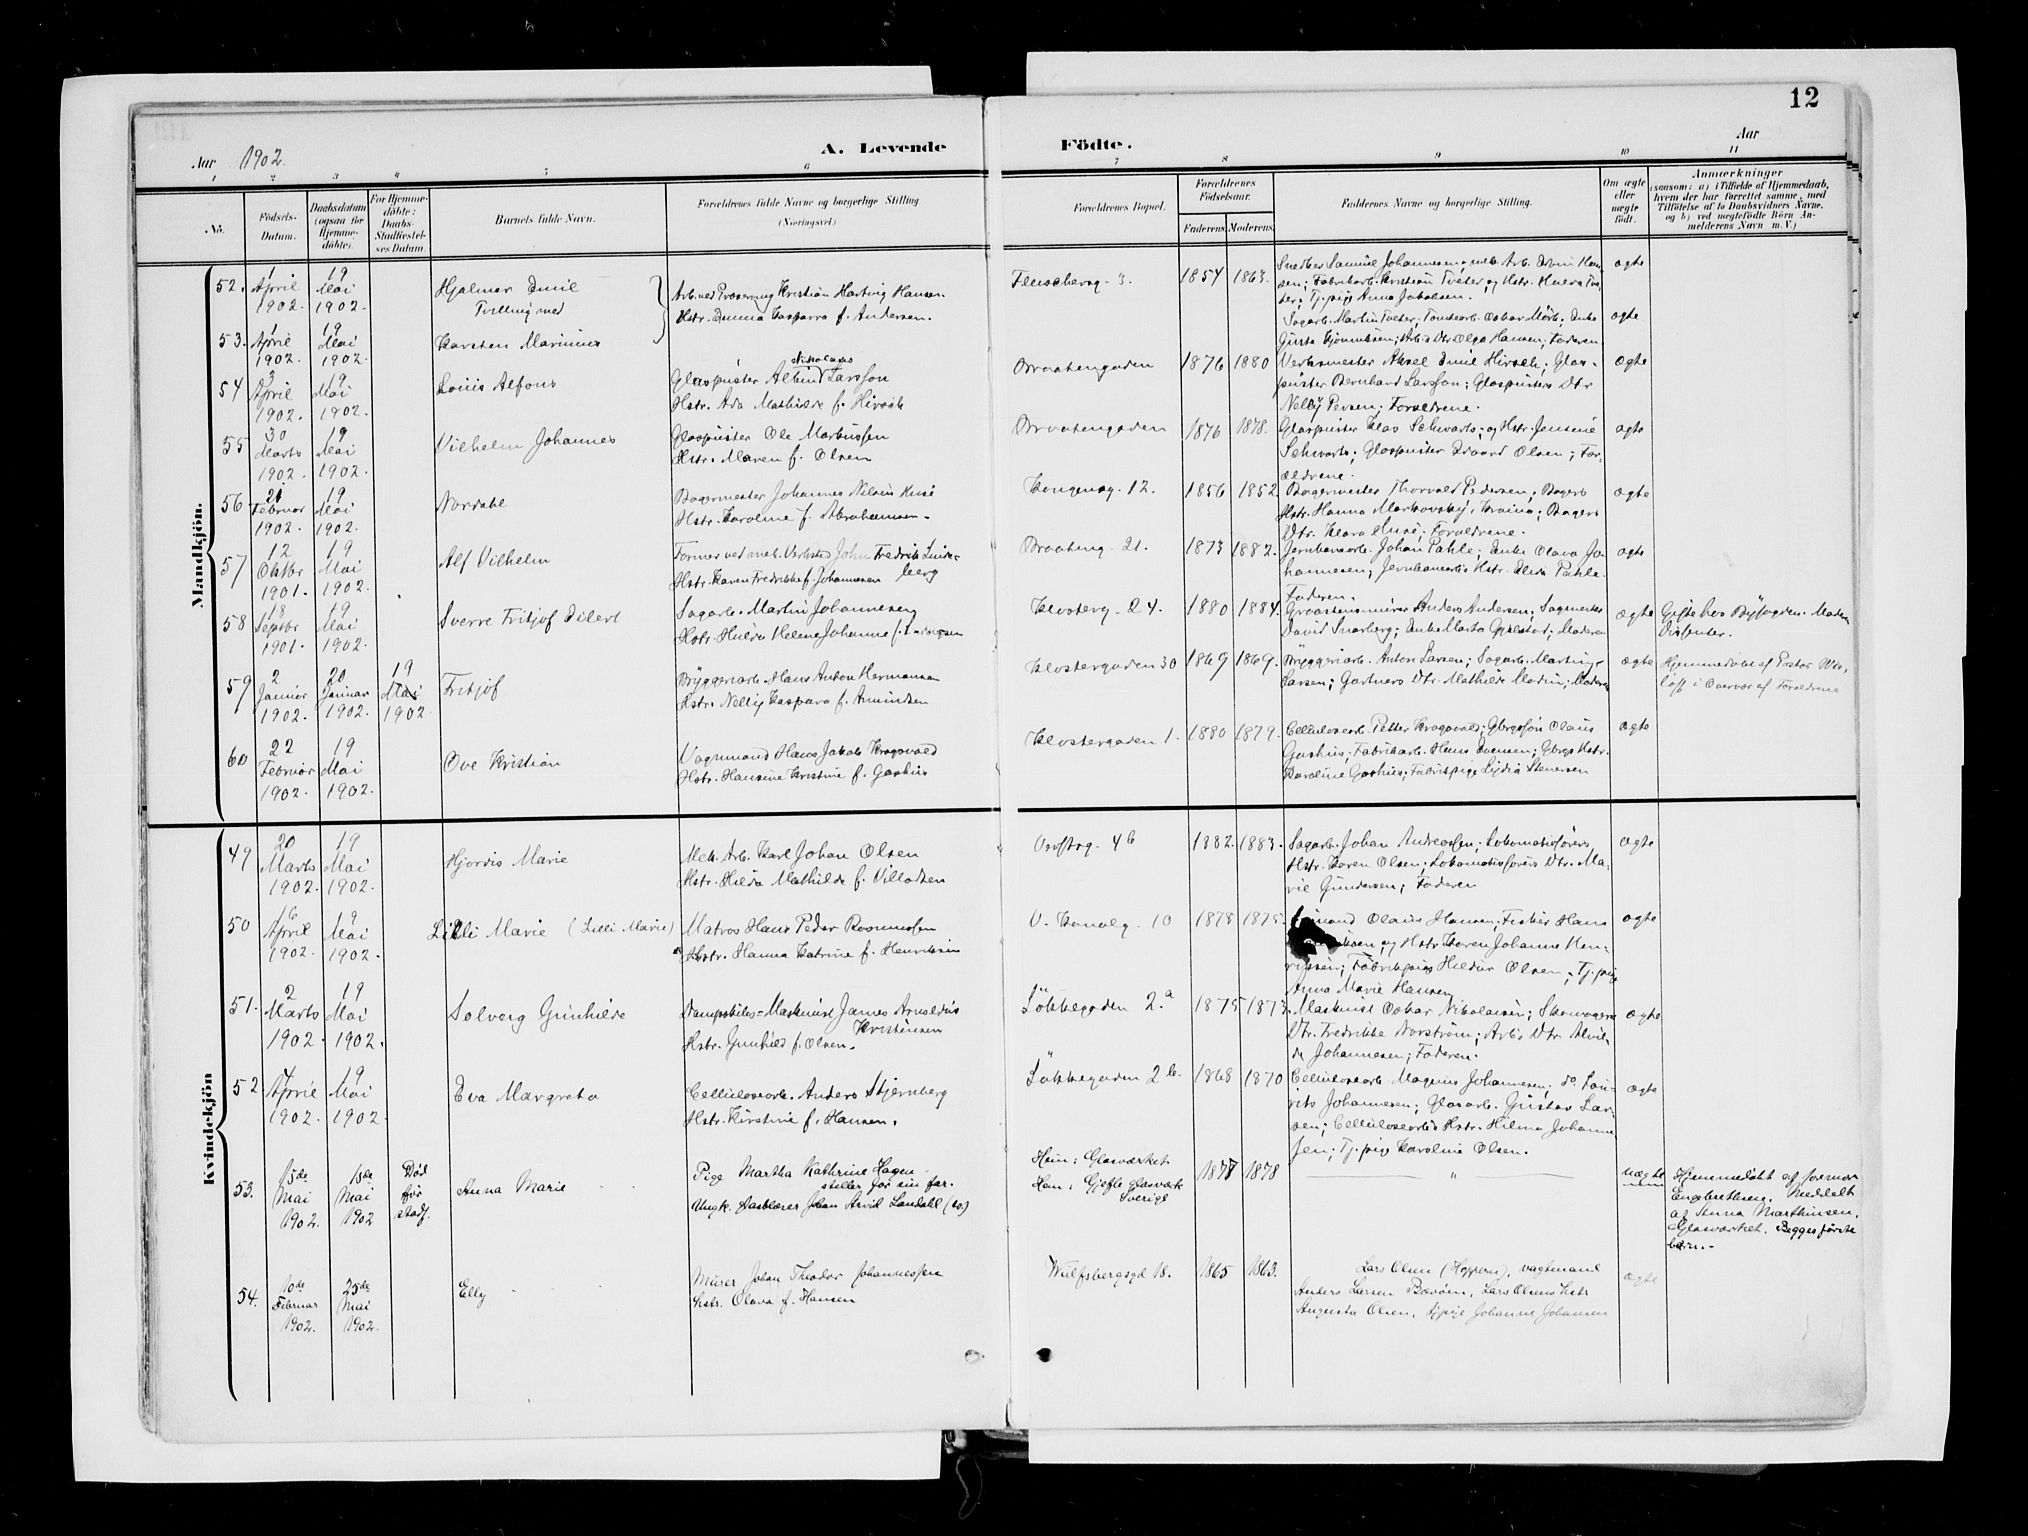 12
Aar 1902.
A. Levende
Födte.
Aar
1 2 3 4 5 6
7 8 9 10 11
No.
Födsels-Datum.
Daabsdatum (ogsaa for Hjemme-döbte).
For Hjemme-döbte: Daabs-Stadfæstel-ses Datum.
Barnets fulde Navn.
Forældrenes fulde Navne og borgerlige Stilling. (Næringsvei.)
Forældrenes Bopæl.
Forældrenes Födselsaar.
Faderens. Moderens.
Faddernes Navne og borgerlige Stilling.
Om ægte eller uægte födt.
Anmærkninger
(saasom: a) i Tilfælde af Hjemmedaab, hvem der har forrettet samme, med Tilföielse af to Daabsvidners Navne, og b) ved uægtefödte Börn Anmelderens Navn m. V.)
Mandkjön.
52. 1 April 1902. 19 Mai 1902. Hjalmar Emil
Tvilling med
Arb. ved Prøvering Kristian Hartvig Hansen.
Hstr. Emma Kaspara f. Andersen.
1854 1863.
Snedker Samuel Johannesen; mek. Arb. Edvin Hansen; Fabrikarb. Kristian Tveter, og Hstr. Hulda Tveter; Tj.pige Anna Jakobsen.
ægte
53. 1 April 1902. 19 Mai 1902. Karsten Marinius
Sagarb. Martin Tveter; Tomtearb. Oskar Mörk; Enke
Olga Hansen; Faderen
ægte
54 3 April 1902. 19 Mai 1902. Louis Alfons
Glaspuster Albin Nikolaus Larsson
Hstr. Ada Mathilde f. Hirsch
Braatengaden 1876 1880
Verksmester Aksel Emil Hirsch; Glaspuster Bernhard Larsson; Glaspusters Dtr.
Nelly Persen; Forældrene.
ægte
55 30 Marts 1902. 19 Mai 1902. Vilhelm Johannes
Glaspuster Ole Markussen
Hstr. Maren f. Olsen
Braatengaden 1876 1878.
Glaspuster Klas Schwarts; og Hstr. Jensine
Schwarts; Glaspuster Edvard Olsen; Forældrene.
ægte
56 21 Februar 1902. 19 Mai 1902. Nordahl
Bagermester Johannes Nilsen Husé
Hstr. Karoline f. Abrahamsen.
Kongensg. 12. 1856 1852.
Bagermester Thorvald Pedersen; Bagers
Hstr. Hanna Markovsky, Kraina; Bagers
Dtr. Klara Husé; Forældrene.
ægte
57 12 Oktbr 1901. 19 Mai 1902. Alf Vilhelm
Former ved mek. Verksted John Fredrik Lindeberg
Hstr. Karen Fredrikke f. Johannesen
Braateng. 21. 1873 1882.
Jernbanearb. Johan Pahle; Enke Olava Johannesen; Jernbanearbs Hstr. Elida Pahle.
Faderen.
ægte
58 18 Septbr 1901. 19 Mai 1902. Sverre Fritjof Eilert
Sagarb. Martin Johannesen
Hstr. Hulda Helene Johanne f.
Klosterg. 24. 1880 1884.
Graastensmurer Anders Andersen; Sagmester
David Snarberg; Enke Marta Gjelstad; Moderen
ægte
Gifte hos Byfogden. Moderen Dissenter.
59 2 Januar 1902. 20 Januar 1902. 19 Mai 1902. Fritjof
Bryggeriarb. Hans Anton Hermansen
Hstr. Nelly Kaspara f. Amundsen
Klostergaden 30 1869 1869.
Bryggeriarb. Anton Larsen; Sagarb. Martin
Larsen; Gartners Dtr. Mathilde Modin; Moderen
ægte
Hjemmedöbt af Pastor
i Overvær af Forældrene
60 22 Februar 1902. 19 Mai 1902. Ove Kristian
Vognmand Hans Jakob Kragsvald
Hstr. Hansine Kristine f. Gashus
Klostergaden 1. 1880 1879.
Cellulosearb. Petter Kragsvald; Gbrgssön Olaus
Gashus; Fabrikarb. Hans Svensen; Gbrgs Hstr.
Karoline Gashus; Fabrikpige Lydia Stenersen
ægte
Kvindekjön
49 20 Marts 1902. 19 Mai 1902. Hjördis Marie
Mek. Arb. Karl Johan Olsen
Hstr. Hilda Mathilde f. Villadsen
4b 1882. 1883.
Sagarb. Johan Andreassen; Lokomotivförers
Hstr. Karen Olsen; Lokomotivförers Dtr. Marie Gundersen; Faderen
ægte
50 16 April 1902. 19 Mai 1902. Lilli Marie (Lilli Marie)
Matros Hans Peder Rasmussen
Hstr. Hanna Katrine f. Henriksen
V. Kanalg. 10 1878 1875.
Olaus Hansen; Fisker Hans
og Hstr. Karen Johanne Henriksen; Fabrikpige Hildur Olsen; Tj.pige
Anna Marie Hansen
ægte
51. 2 Marts 1902. 19 Mai 1902. Solveig Gunhilde
Dampskibs-Maskinist James Arnoldus Kristensen
Hstr. Gunhild f. Olsen.
Lökkegaden 2.a 1875 1873.
Maskinist Oskar Nikolaisen; Skomagers
Dtr. Fredrikke Norström; Arb's Dtr. Alvilde Johannesen; Faderen.
ægte
52 4 April 1902. 19 Mai 1902. Eva Margreta
Cellulosearb. Anders Stjernberg
Hstr. Kirstine f. Hansen.
Lökkegaden 2b. 1868 1870
Cellulosearb. Magnus Johannesen; do. Laurits Johannesen; Glasarb. Gustav Larsen; Cellulosearbs Hstr. Hilma Johannesen; Tj.pige Karoline Olsen.
ægte
53. 15de Mai 1902. 15de Mai 1902 Död för stadf. Anna Marie
Pige Martha Kathrine Hagen
steller for sin far.
Ungk. Glasblæser Johan Arvid Landahl (so.)
Hun: Glasværket
Han: Gjefle glasværk Sverige
1877 1878
"
uægte
Hjemmedöbt af jormor
Engebrethsen. Meddelt
af Anna Marthinsen,
Glasværket. Begges förste
barn.-
54. 10de Februar 1902. 25de Mai 1902. Elly
Murer Johan Theodor Johannessen
hstr. Olava f. Hansen
Wulfsbergsgd 18. 1865 1863.
Lars Olsen (Hoppern), vagtmand
Anders Larsen Bæröen, Lars Olsens hstr
Augusta Olsen, tjpige Johanne Johansen
ægte